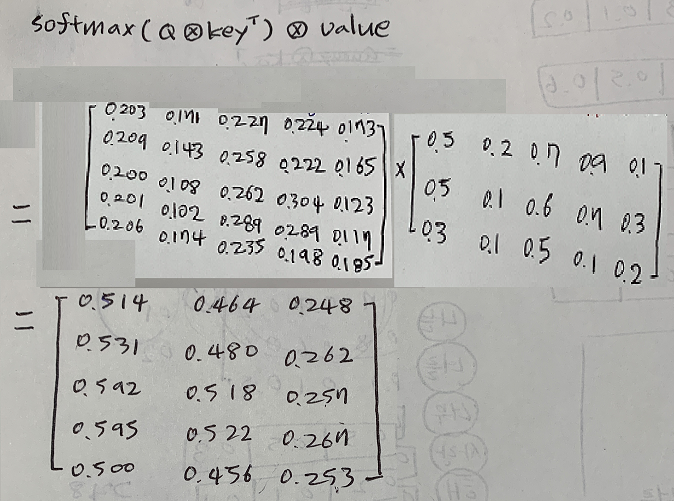 softmax(Q⊗keyᵀ)⊗value
= [ 0.203 0.171 0.227 0.224 0.173 ] × [ 0.5 0.2 0.7 0.9 0.1 ]
0.209 0.143 0.258 0.222 0.165
0.200 0.108 0.262 0.304 0.123 0.5 0.1 0.6 0.7 0.3
0.201 0.102 0.289 0.289 0.117
0.206 0.174 0.235 0.198 0.185 0.3 0.1 0.5 0.1 0.2
= [ 0.514 0.464 0.248 ]
0.531 0.480 0.262
0.592 0.518 0.257
0.595 0.522 0.267
0.500 0.456 0.253